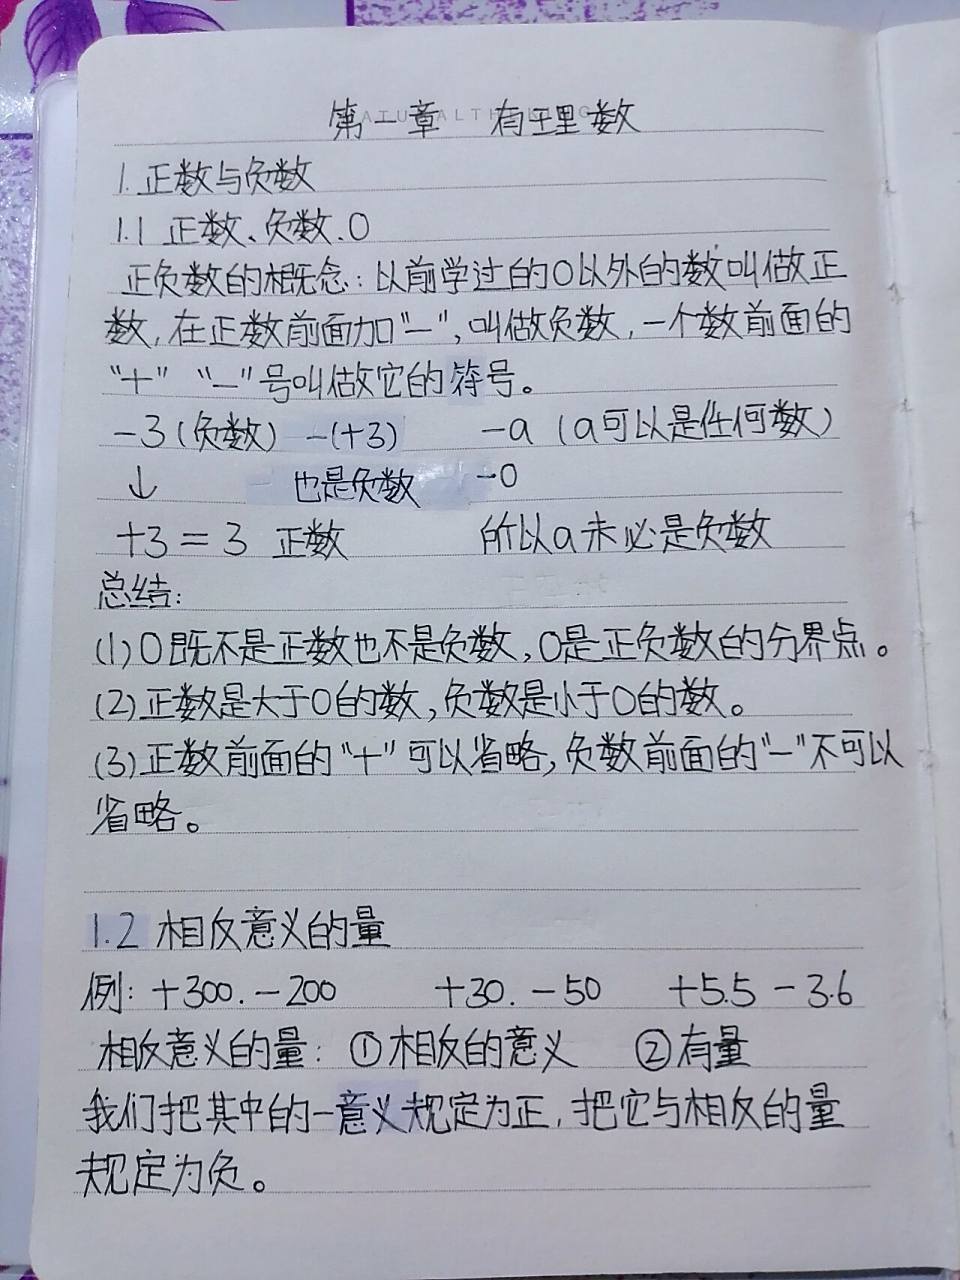 第一章 有理数
1.正数与负数
1.1 正数、负数.0
正负数的概念：以前学过的0以外的数叫做正
数，在正数前面加“－”，叫做负数，一个数前面的
“＋”“－”号叫做它的符号。
－3（负数） －(+3) －a（a可以是任何数）
↓ 也是负数 －0
+3＝3 正数 所以a未必是负数
总结：
(1)0既不是正数也不是负数，0是正负数的分界点。
(2)正数是大于0的数，负数是小于0的数。
(3)正数前面的“＋”可以省略，负数前面的“－”不可以
省略。
1.2 相反意义的量
例：+300.－200 +30.－50 +5.5－3.6
相反意义的量：①相反的意义 ②有量
我们把其中的一意义规定为正，把它与相反的量
规定为负。